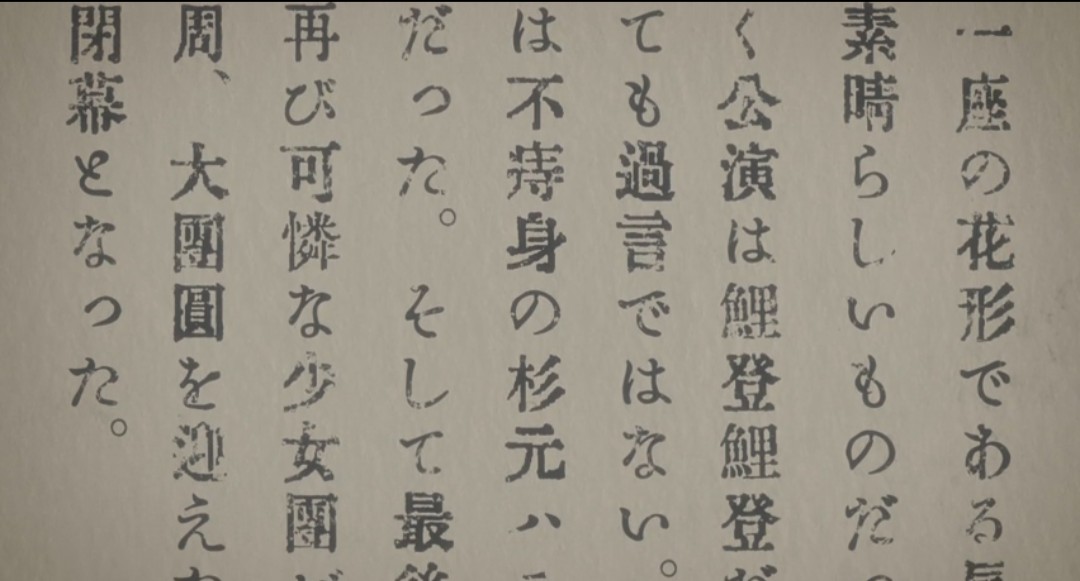 一座の花形である
素晴らしいものだ
く公演は鯉登鯉登
ても過言ではない。
は不痔身の杉元ハ
だった。 そして最
再び可憐な少女團
周、大團圓を迎え
閉幕となった。